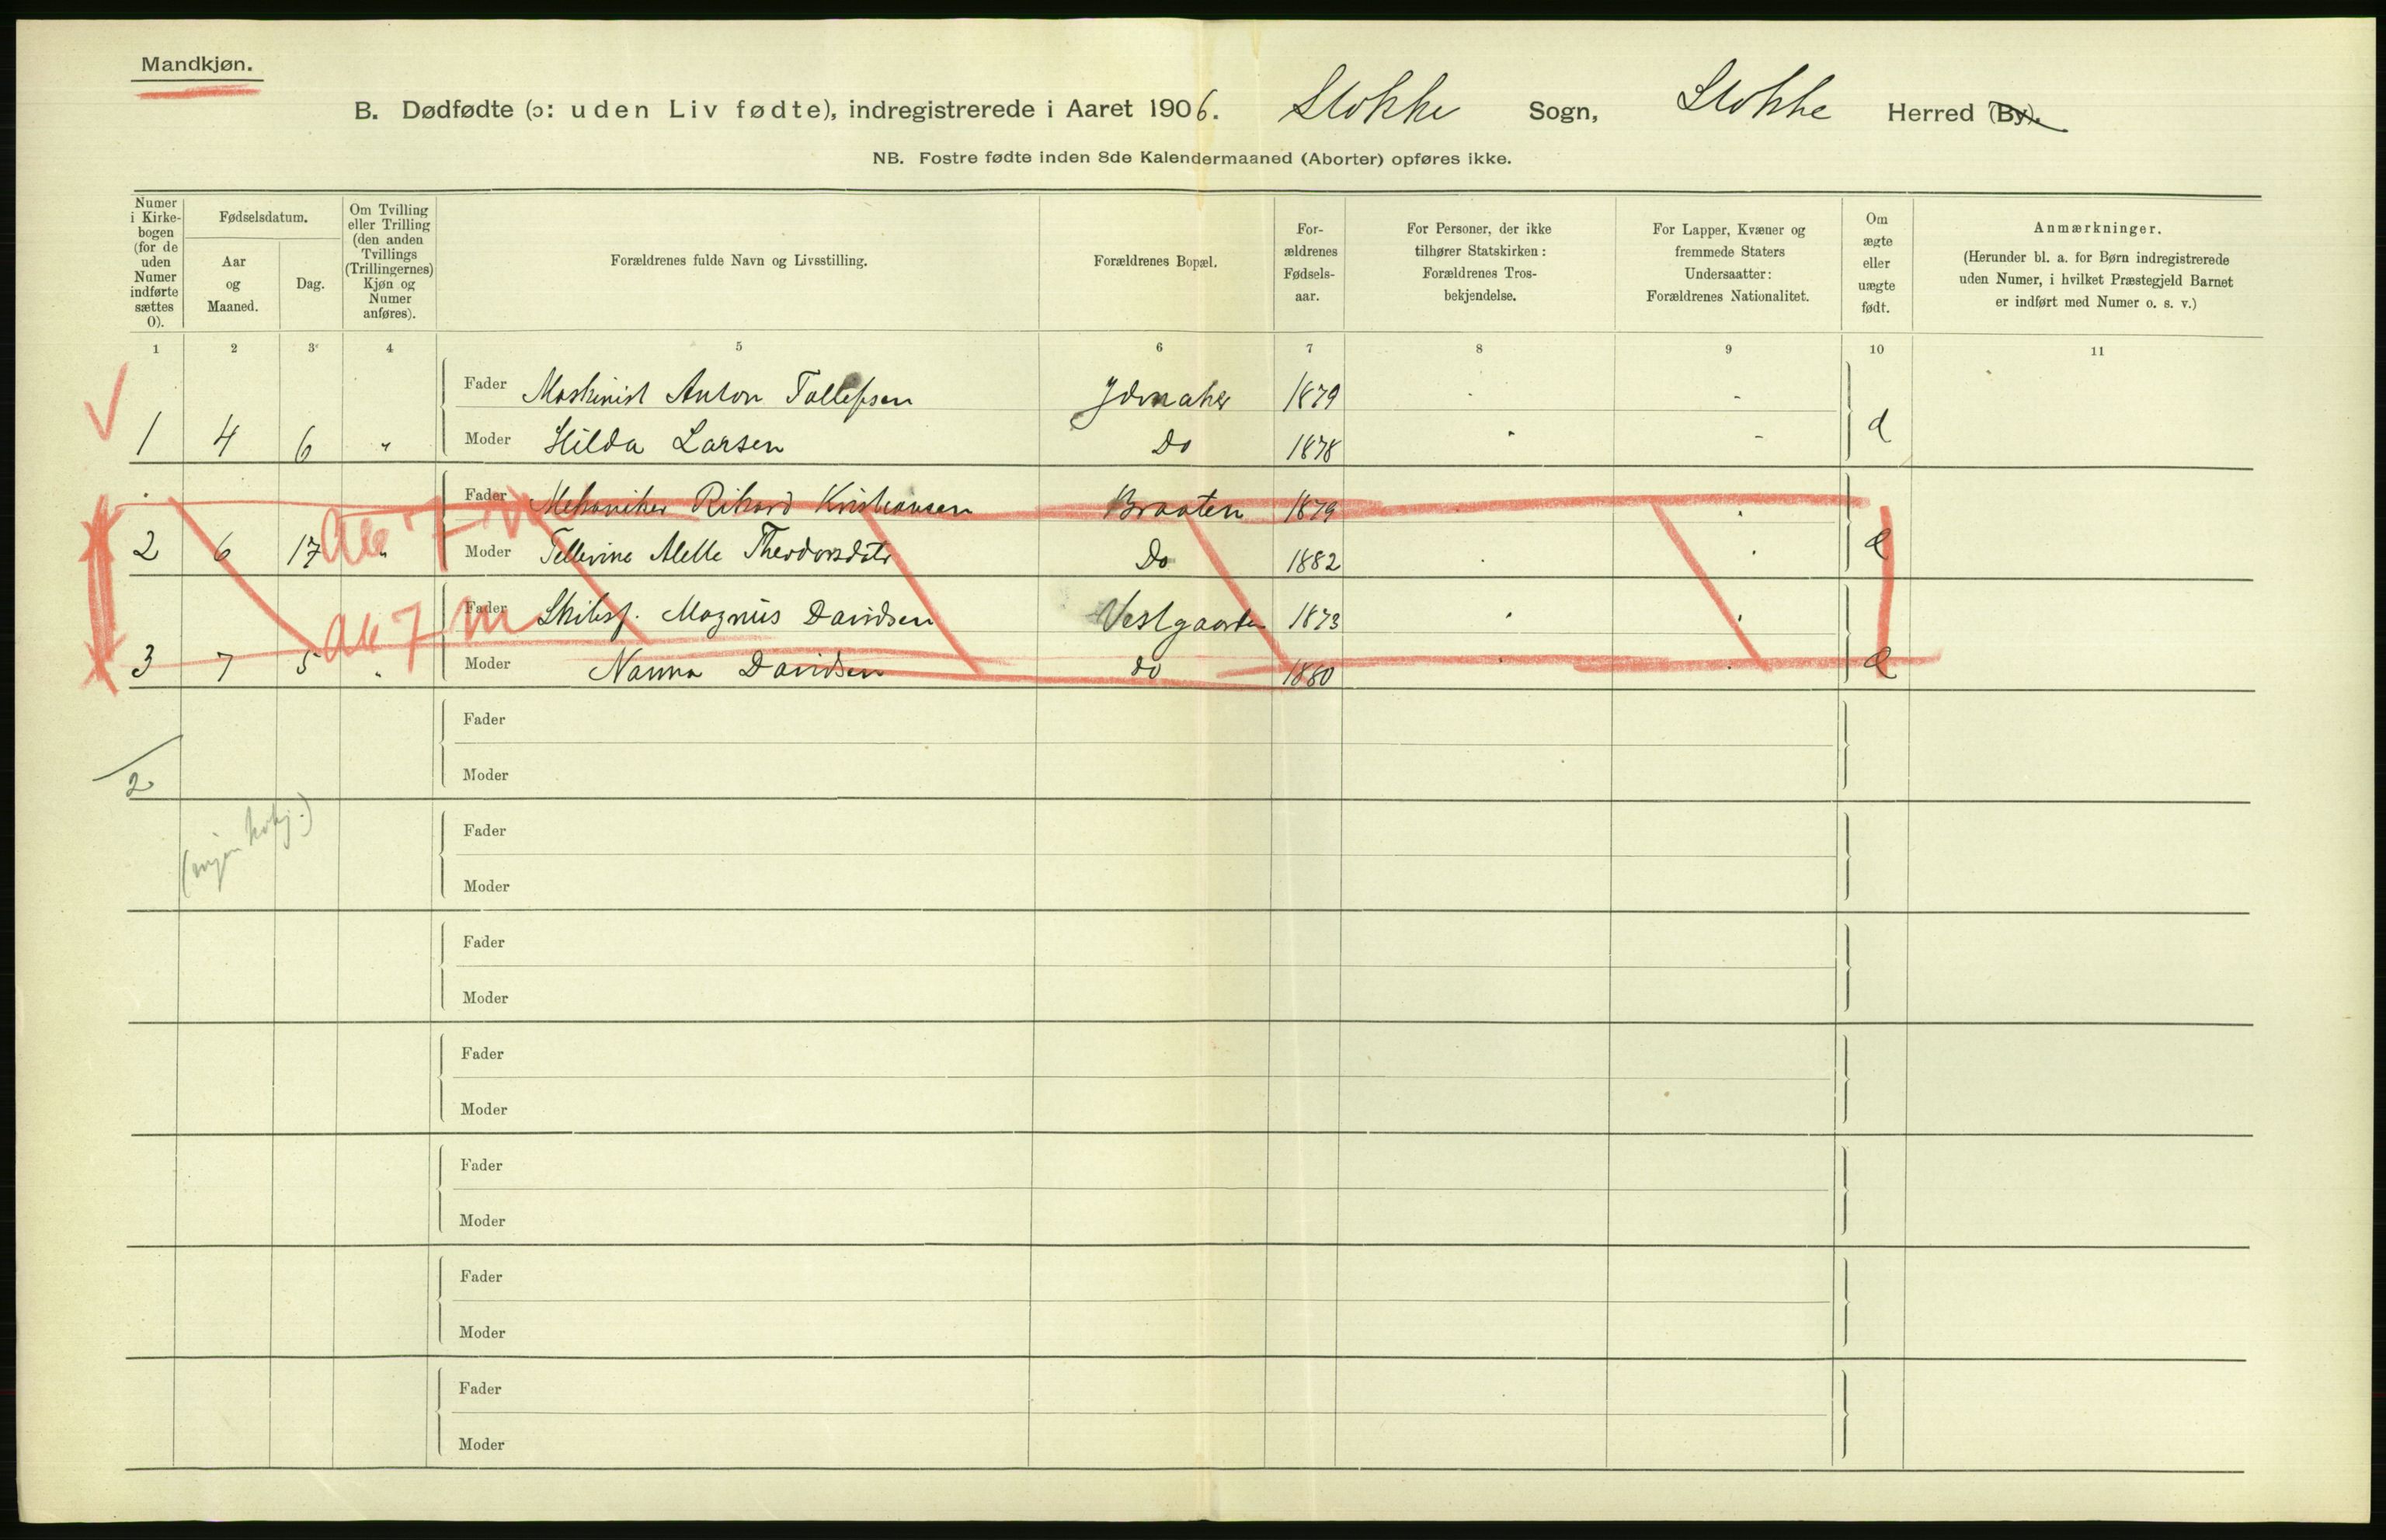 Mandkjøn.
B. Dødfødte (ɔ: uden Liv fødte), indregistrerede i Aaret 1906. Stokke Sogn, Stokke Herred (By).
NB. Fostre fødte inden 8de Kalendermaaned (Aborter) opføres ikke.
Numer i Kirke-bogen (for de uden Numer indførte sættes 0).
Fødselsdatum.
Aar og Maaned.
Dag.
Om Tvilling eller Trilling (den anden Tvillings (Trillingernes) Kjøn og Numer anføres).
Forældrenes fulde Navn og Livsstilling.
Forældrenes Bopæl.
For-ældrenes Fødsels-aar.
For Personer, der ikke tilhører Statskirken: Forældrenes Tros-bekjendelse.
For Lapper, Kvæner og fremmede Staters Undersaatter: Forældrenes Nationalitet.
Om ægte eller uægte født.
Anmærkninger.
(Herunder bl. a. for Børn indregistrerede uden Numer, i hvilket Præstegjeld Barnet er indført med Numer o. s. v.)
1 2 3 4 5 6 7 8 9 10 11
Fader Maskinist Anton Tollefsen 1879
1 4 6 " Moder Hilda Larsen Do 1878
Fader Mekaniker Rikard Kristiansen Braaten 1879
2 6 17 " Moder Tellevine Alette Theodorsdatr Do 1882
Fader Skibsf. Magnus Davidsen Vestgaarden 1873
3 7 5 " Moder Nanna Davidsen do 1880
Fader
2 Moder
Fader
Moder
Fader
Moder
Fader
Moder
Fader
Moder
Fader
Moder
Fader
Moder